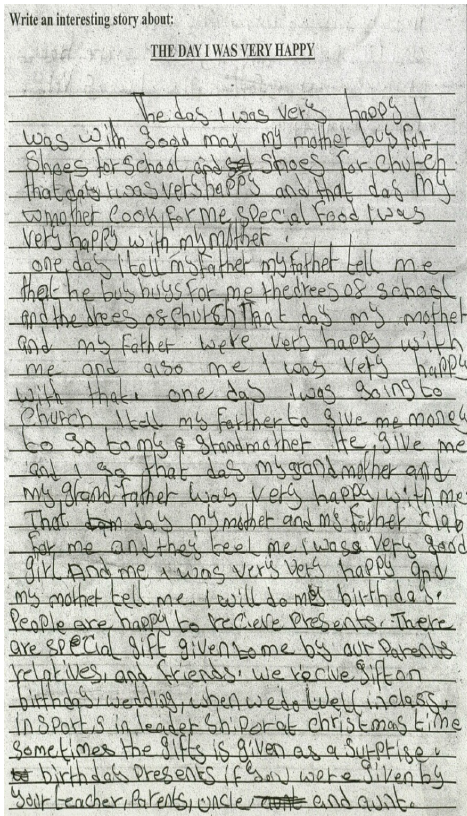 Write an interesting story about:
THE DAY I WAS VERY HAPPY
The day I was very happy I
was with good max my mother buy for
Shoes for school and shoes for church
that day I was very happy and that day my
mother cook for me special food I was
very happy with my mother.
one day I tell my father my father tell me
that he buy buys for me the drees of school
and the drees of church That day my mother
and my father were very happy with
me and also me I was very happy
with that. one day I was going to
Church I tell my Farther to give me money
to go to my grandmother He give me
and I go that day my grandmother and
my grandfather was very happy with me
That day my mother and my father clab
for me and they teel me I was very good
girl And me I was very very happy and
my mother tell me I will do my birthday.
People are happy to recieve presents. There
are special gift given to me by our parents
relatives, and friends. we recive gift on
birthday wedding, when we do well in class.
In sports in leadership or at christmas time
sometimes the gifts is given as a surprise.
birthday presents if you were given by
your teacher, parents, uncle, and aunt.